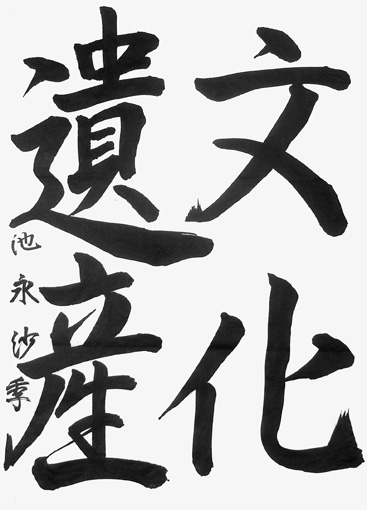 文化
遺産
池永沙季